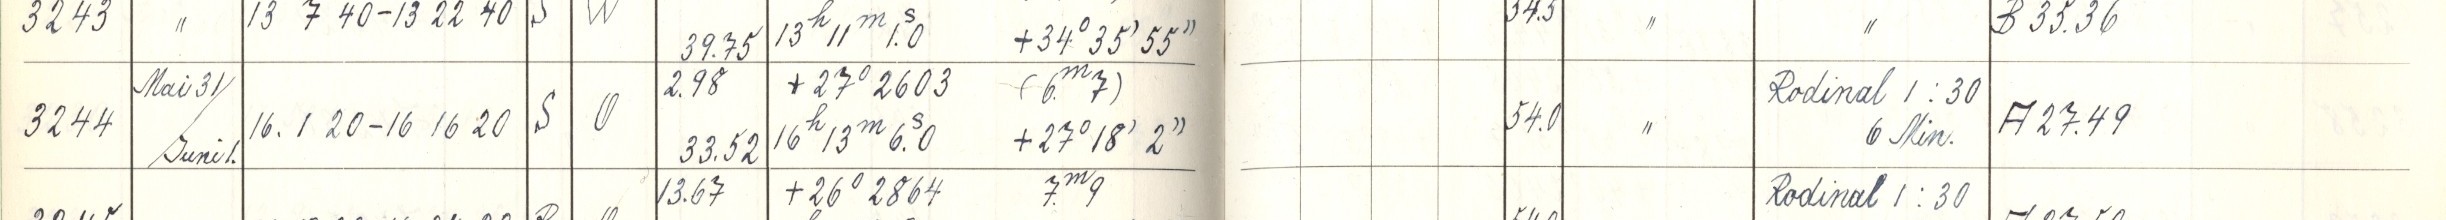 3243 " 13 7 40-13 22 40 S W 34.5 " " B 35.36
39.75 13h 11m 1.s0 +34° 35' 55"
Mai 31/ 2.98 +27° 2603 (6.m7) Rodinal 1:30
3244 16. 1 20-16 16 20 S O 54.0 " A 27.49
Juni 1. 33.52 16h 13m 6.s0 +27° 18' 2" 6 Min.
13.67 +26° 2864 7.m9 Rodinal 1:30